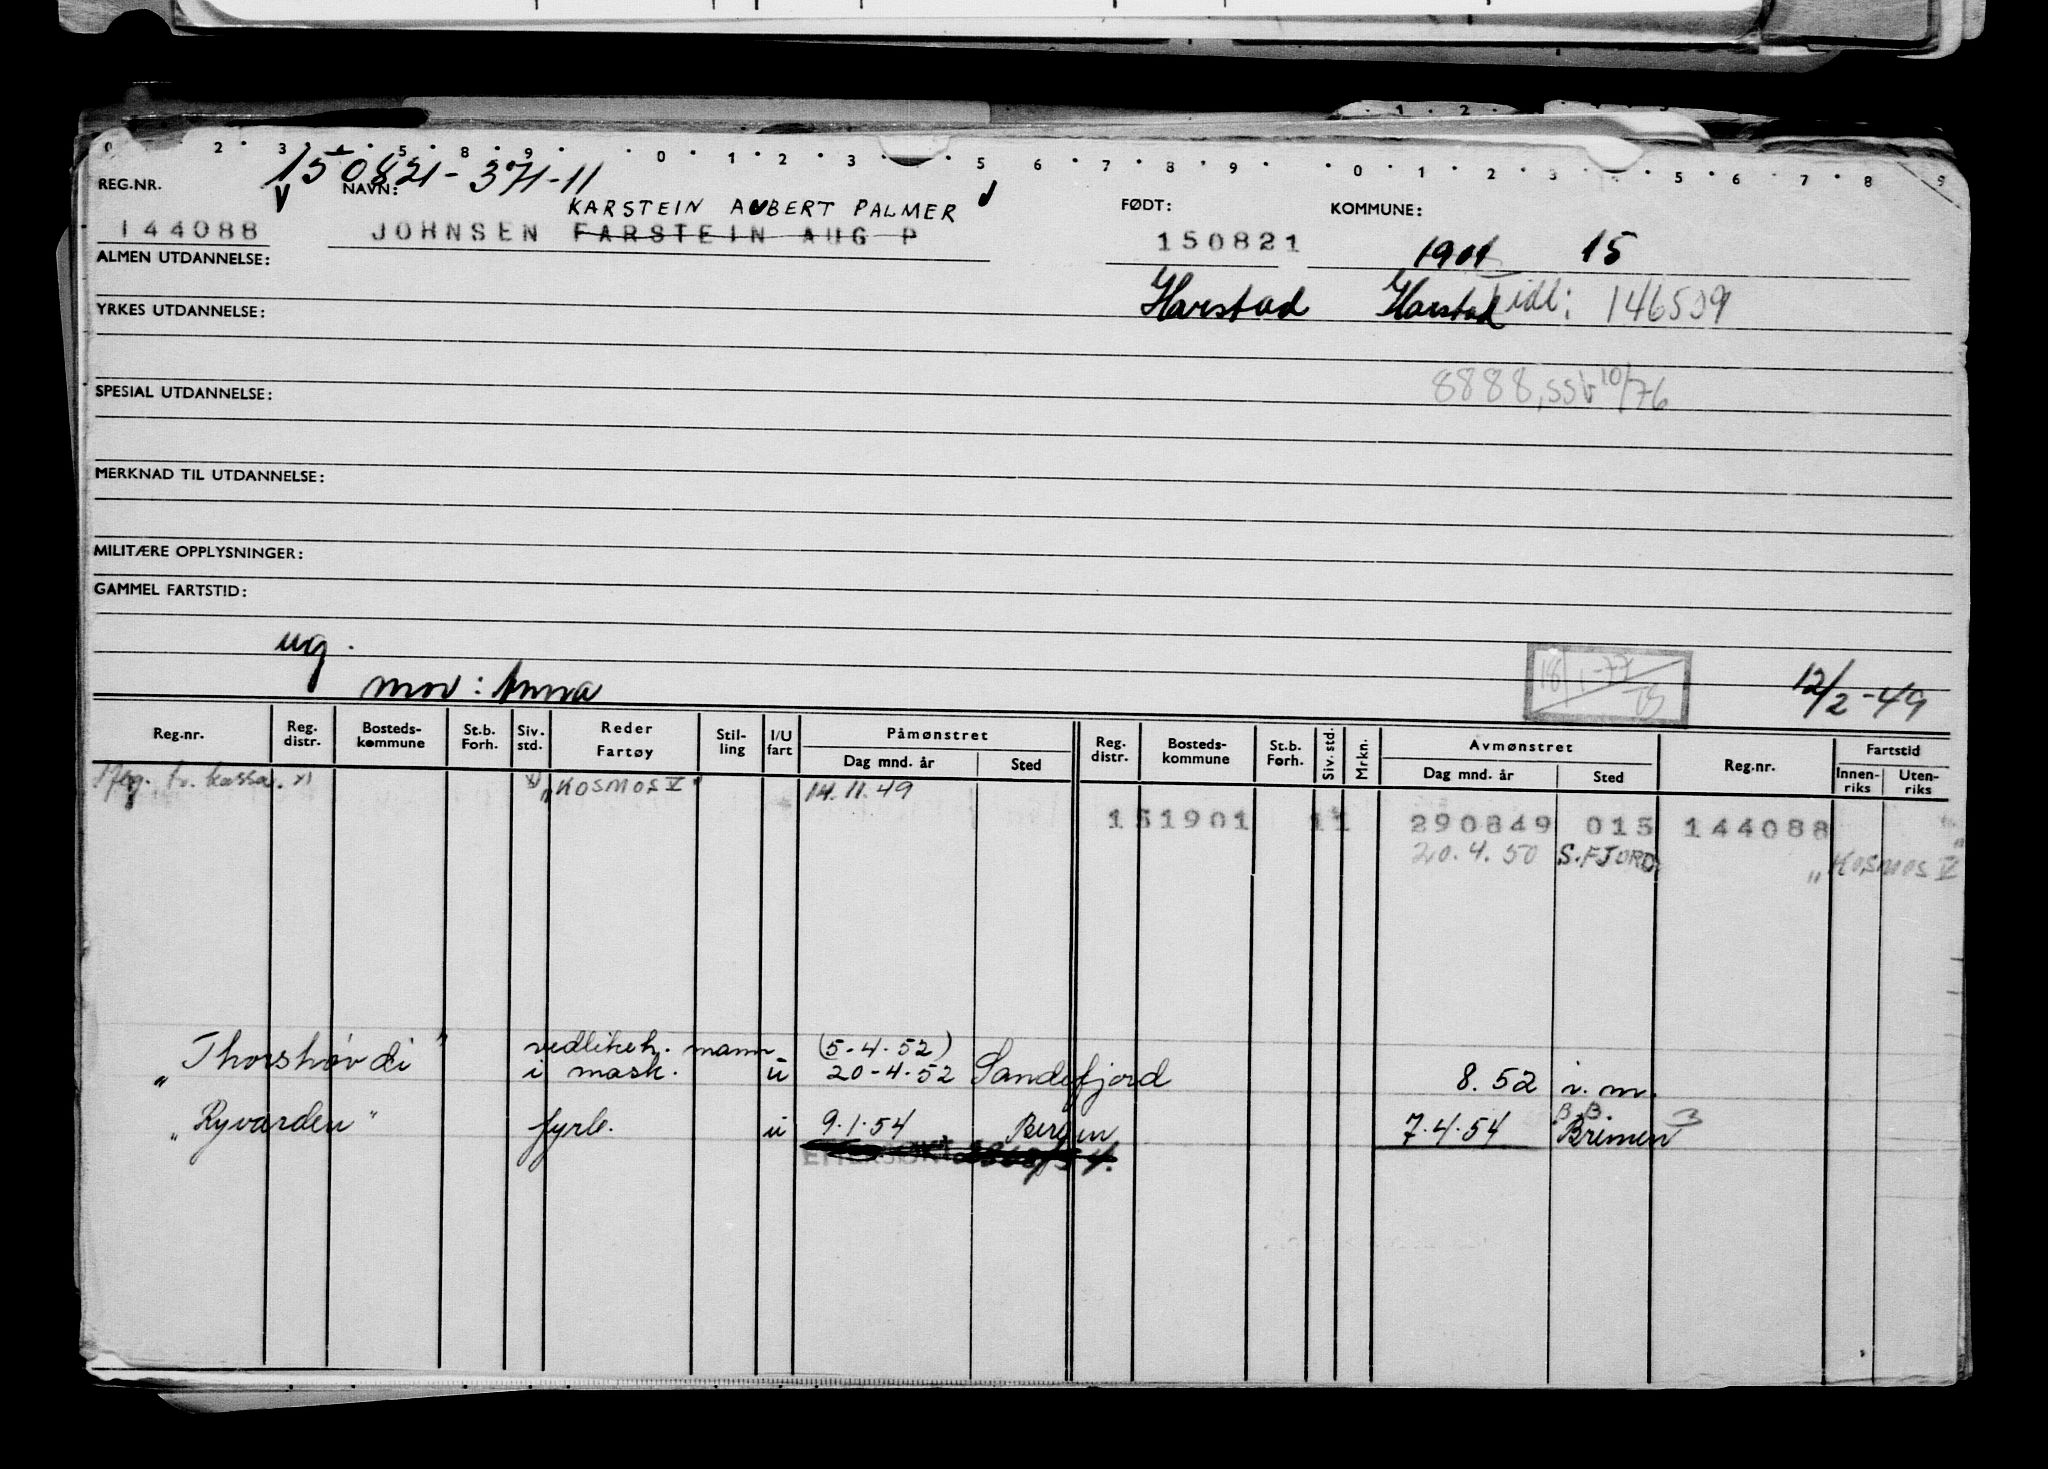 150821-371-11
REG.NR. NAVN: FØDT: KOMMUNE:
KARSTEIN AUBERT PALMER
144088 JOHNSEN FARSTEIN AUG P 150821 1901 15
ALMEN UTDANNELSE:
Harstad Harstad idl: 146509
YRKES UTDANNELSE:
8888, SSB 10/76
SPESIAL UTDANNELSE:
MERKNAD TIL UTDANNELSE:
MILITÆRE OPPLYSNINGER:
GAMMEL FARTSTID:
ug.
mor: Anna 18/1-77 12/2-49
Reg.nr. Reg. distr. Bosteds- kommune St.b. Forh. Siv. std. Reder Fartøy Stil- ling I/U fart Påmønstret Dag mnd. år Sted Reg. distr. Bosteds- kommune St.b. Forh. Siv. std. Mrkn. Avmønstret Dag mnd. år Sted Reg.nr. Fartstid Innen- riks Uten- riks
kassa. x) x) "KOSMOS V" 14.11.49
151901 11 290849 015 144088
20.4.50 S.FJORD "KOSMOS V"
"Thorshøvdi" vedlikeh. mann (5-4-52)
i mask. u 20-4-52 Sandefjord 8.52 i. m.
B.B.
"Ryvarden" fyrb. u 9.1.54 Bergen 7.4.54 Bremen 3